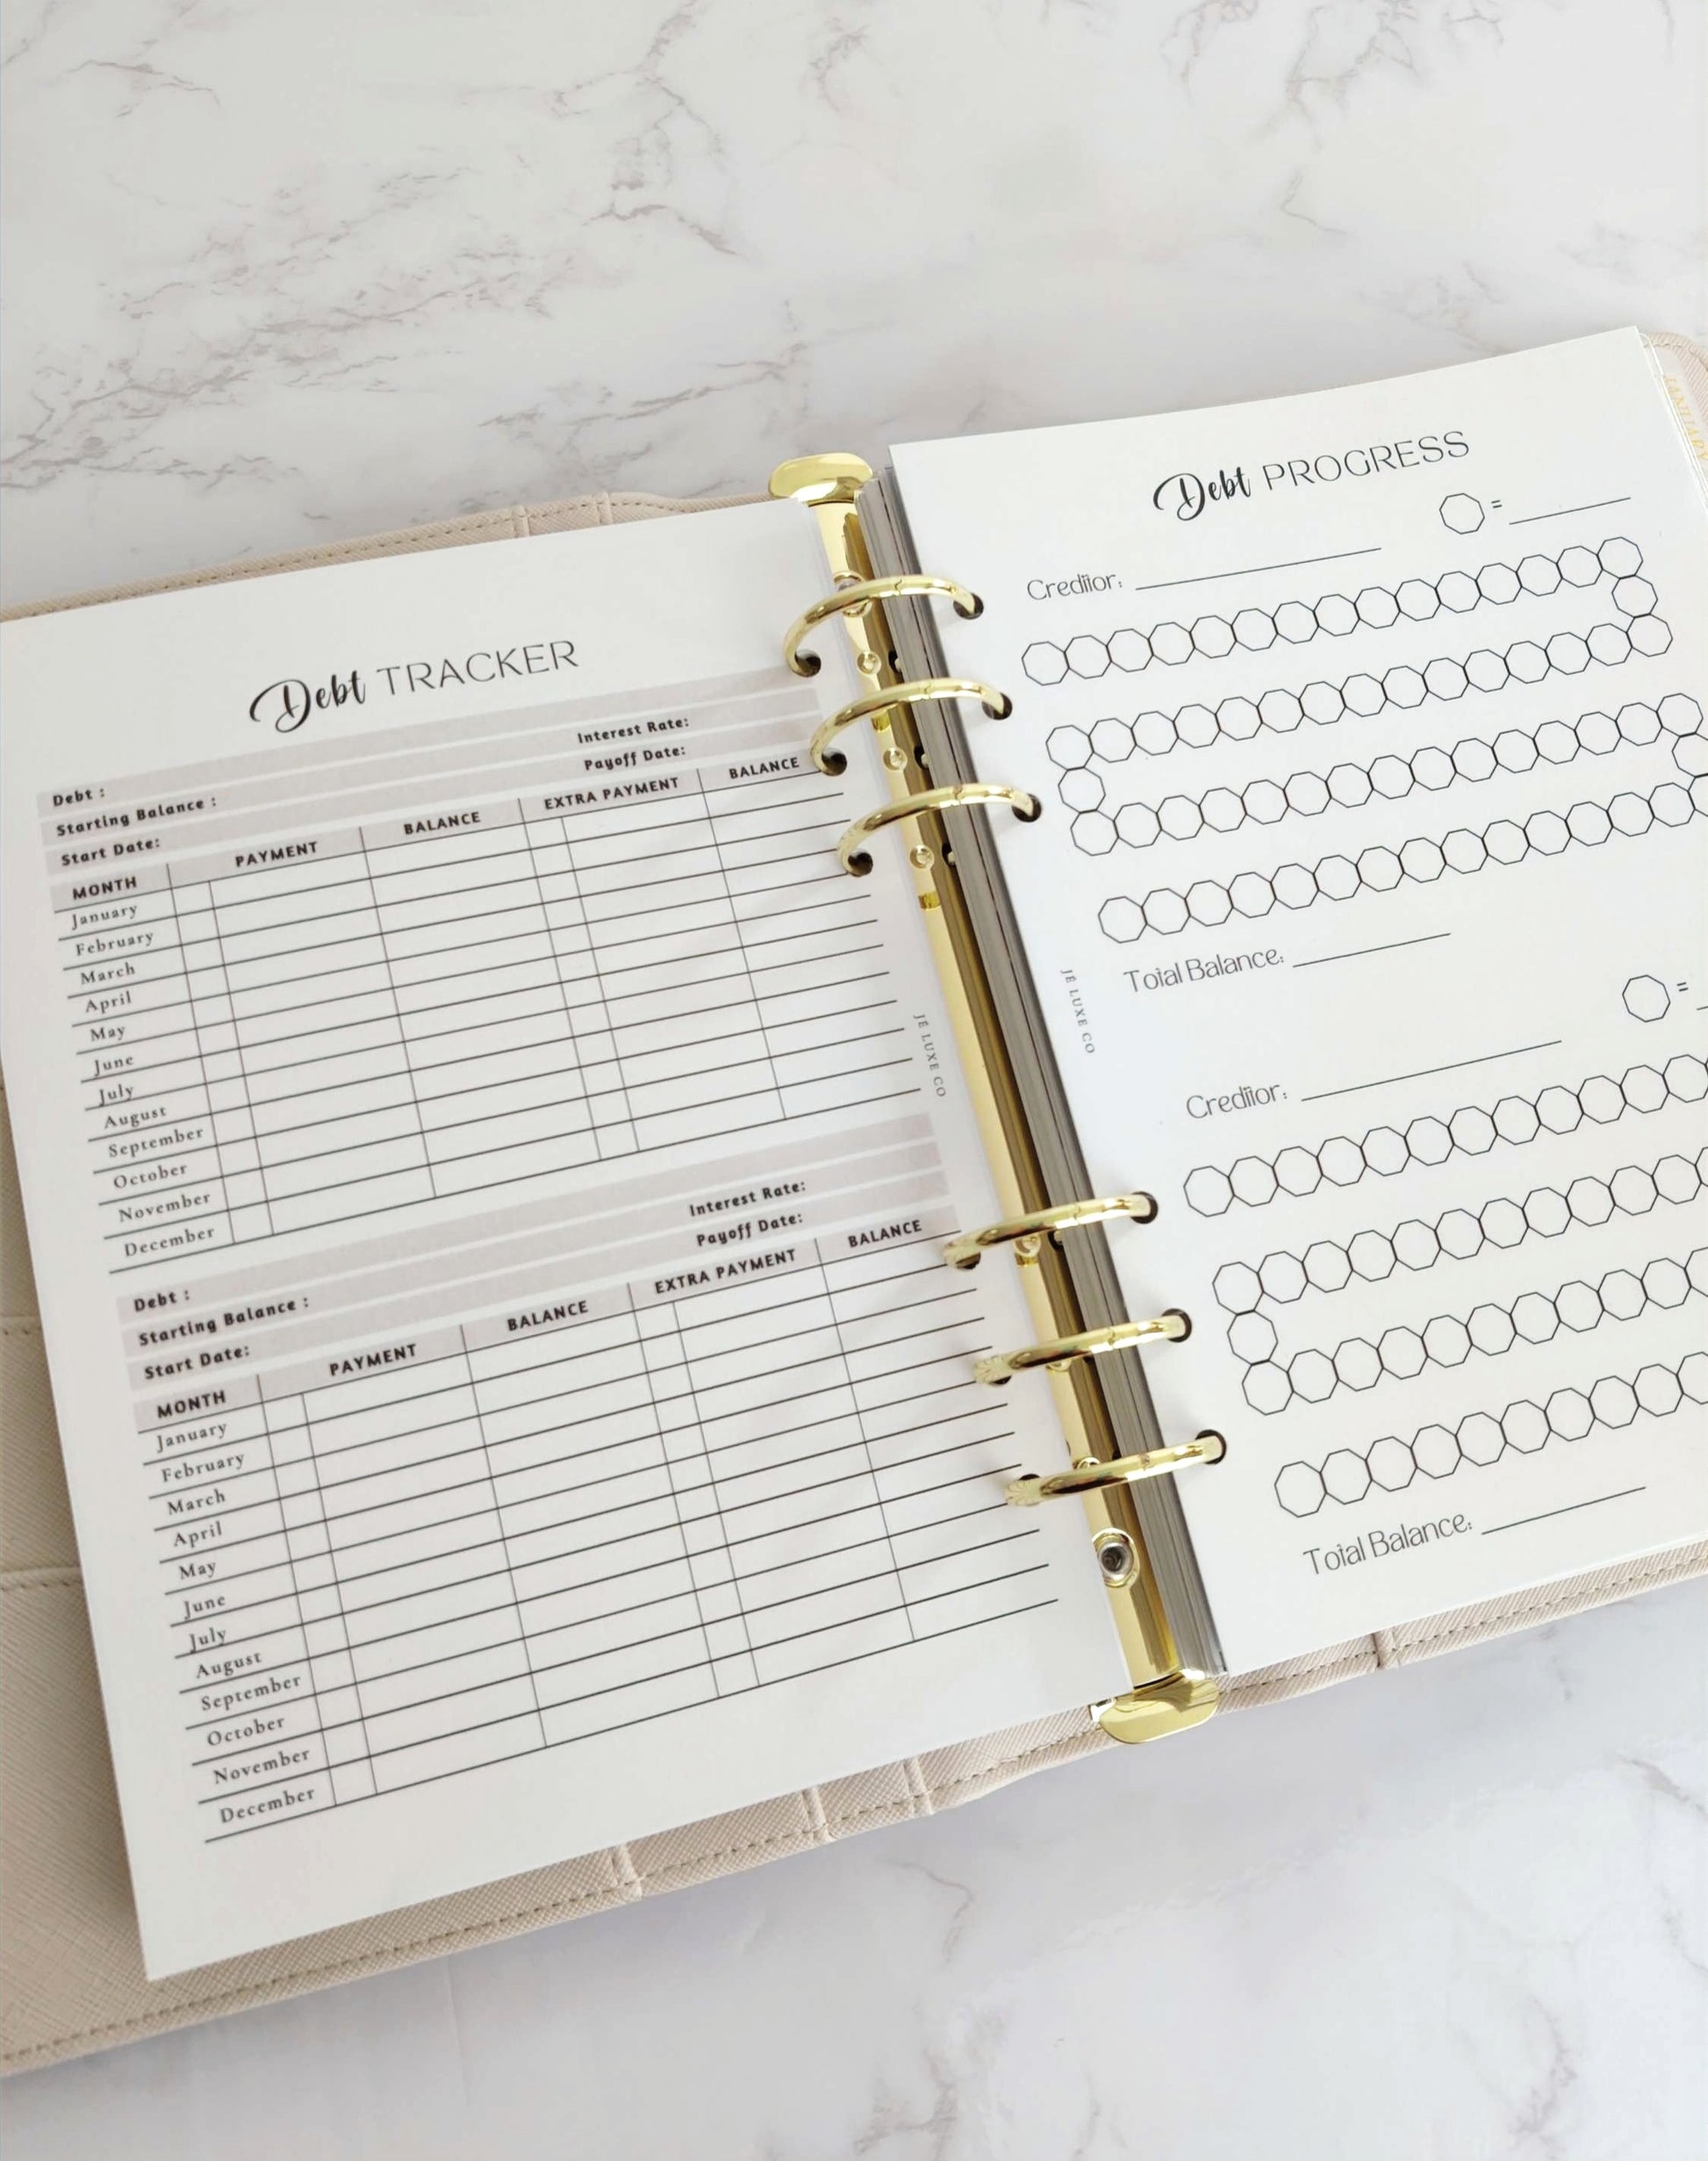 Debt TRACKER
Debt :
Interest Rate:
Starting Balance :
Payoff Date:
Start Date:
MONTH PAYMENT BALANCE EXTRA PAYMENT BALANCE
January
February
March
April
May
June
July
August
September
October
November
December
Debt :
Interest Rate:
Starting Balance :
Payoff Date:
Start Date:
MONTH PAYMENT BALANCE EXTRA PAYMENT BALANCE
January
February
March
April
May
June
July
August
September
October
November
December
JÉ LUXE CO
Debt PROGRESS
=
Creditor:
Total Balance:
=
Creditor:
Total Balance:
JÉ LUXE CO
JANUARY